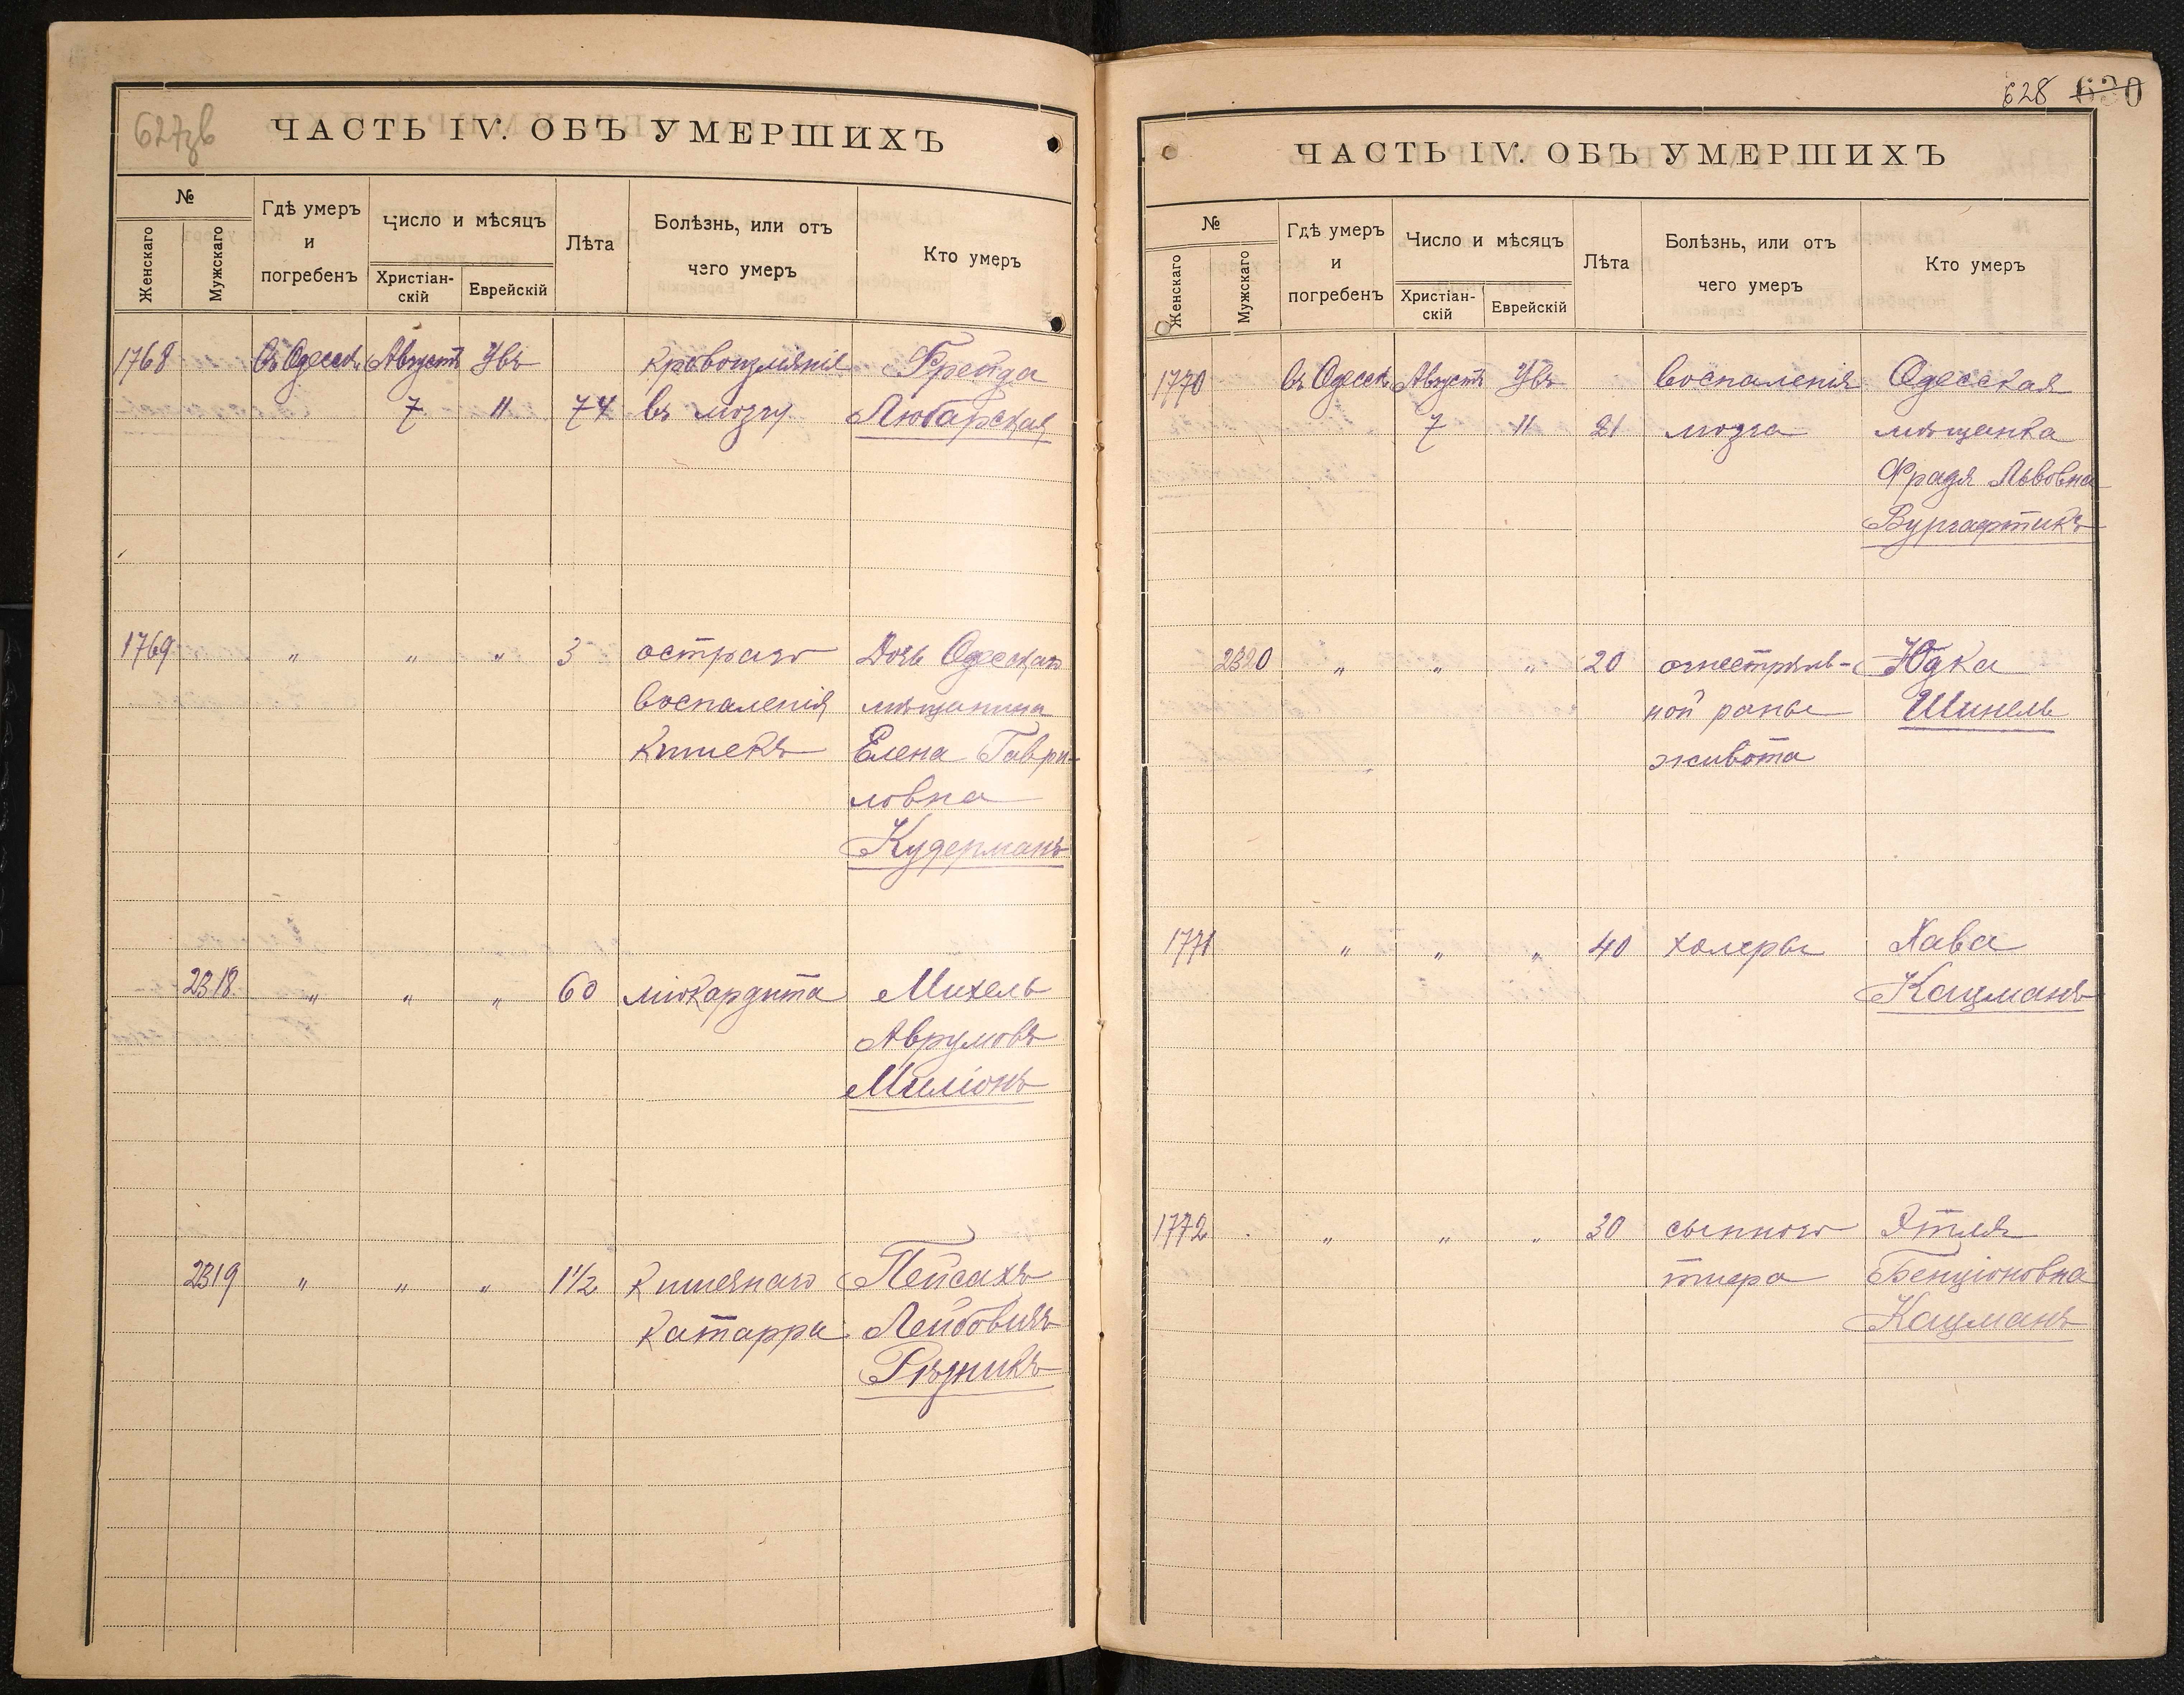 627зв
ЧАСТЬ IV. ОБЪ УМЕРШИХЪ
№
Женскаго
Мужскаго
Гдѣ умеръ
и
погребенъ
Число и мѣсяцъ
Христіан-
скій
Еврейскій
Лѣта
Болѣзнь, или отъ
чего умеръ
Кто умеръ
1768 Въ Одессѣ Августъ Увъ кровоизліянія Фрейда
7 11 74 въ мозгу Любарская
1769 " " " 3 остраго Дочь Одесскаго
воспаленія мѣщанина
кишекъ Елена Гаври-
ловна
Кудерманъ
2318 " " " 60 міокардита Михель
Аврумовъ
Миліонъ
2319 " " " 1½ кишечнаго Пейсахъ
катарра Лейбовичъ
Рѣзникъ
628 630
ЧАСТЬ IV. ОБЪ УМЕРШИХЪ
№
Женскаго
Мужскаго
Гдѣ умеръ
и
погребенъ
Число и мѣсяцъ
Христіан-
скій
Еврейскій
Лѣта
Болѣзнь, или отъ
чего умеръ
Кто умеръ
1770 въ Одессѣ Августъ Увъ воспаленія Одесская
7 11 21 мозга мѣщанка
Фрадя Львовна
Вургафтикъ
2320 " " " 20 огнестрѣль- Юдка
ной раны Шинель
живота
1771 " " " 40 холеры Хава
Кацманъ
1772 " " " 30 сыпного Этля
тифа Бенціоновна
Кацманъ